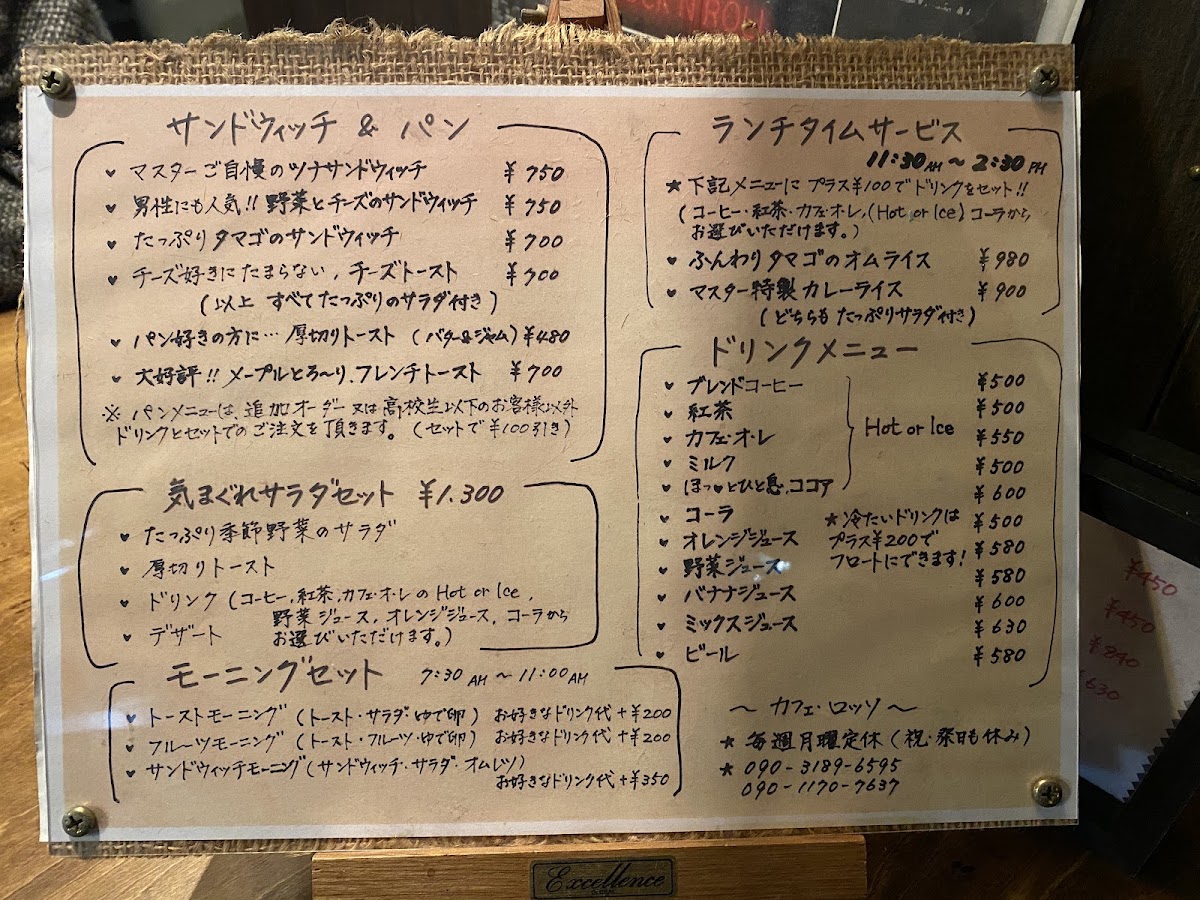 サンドウィッチ & パン
マスターご自慢のツナサンドウィッチ ¥750
男性にも人気!! 野菜とチーズのサンドウィッチ ¥750
たっぷりタマゴのサンドウィッチ ¥700
チーズ好きにたまらない, チーズトースト ¥700
(以上 すべてたっぷりのサラダ付き)
パン好きの方に… 厚切りトースト (バター&ジャム) ¥480
大好評!! メープルとろ〜り、フレンチトースト ¥700
※ パンメニューは、追加オーダー又は高校生以下のお客様以外
ドリンクとセットでのご注文を頂きます。(セットで¥100引き)
気まぐれサラダセット ¥1.300
たっぷり季節野菜のサラダ
厚切りトースト
ドリンク (コーヒー, 紅茶, カフェ・オ・レの Hot or Ice,
野菜ジュース, オレンジジュース, コーラから
デザート お選びいただけます。)
モーニングセット 7:30 AM 〜 11:00 AM
トーストモーニング (トースト・サラダ・ゆで卵) お好きなドリンク代 +¥200
フルーツモーニング (トースト・フルーツ・ゆで卵) お好きなドリンク代 +¥200
サンドウィッチモーニング (サンドウィッチ・サラダ・オムレツ)
お好きなドリンク代 +¥350
ランチタイムサービス
11:30 AM 〜 2:30 PM
★ 下記メニューに プラス¥100で ドリンクをセット!!
(コーヒー・紅茶・カフェ・オ・レ, (Hot or Ice) コーラから
お選びいただけます。)
ふんわりタマゴのオムライス ¥980
マスター特製 カレーライス ¥900
(どちらも たっぷりサラダ付き)
ドリンクメニュー
ブレンドコーヒー ¥500
紅茶 ¥500
カフェ・オ・レ Hot or Ice ¥550
ミルク ¥500
ほっ♥とひと息, ココア ¥600
コーラ ¥500
オレンジジュース ¥580
野菜ジュース ¥580
バナナジュース ¥600
ミックスジュース ¥630
ビール ¥580
★ 冷たいドリンクは
プラス¥200で
フロートにできます!
〜 カフェ・ロッソ 〜
★ 毎週月曜定休 (祝・祭日も休み)
★ 090-3189-6595
090-1170-7637
Excellence
¥450
¥450
¥840
¥630